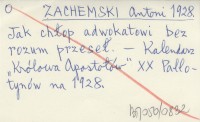 O ZACHEMSKI Antoni 1928.
Jak chłop adwokatowi bez
rozum przeseł. — Kalendarz
„Królowa Apostołów" XX Pallo-
tynów na 1928.